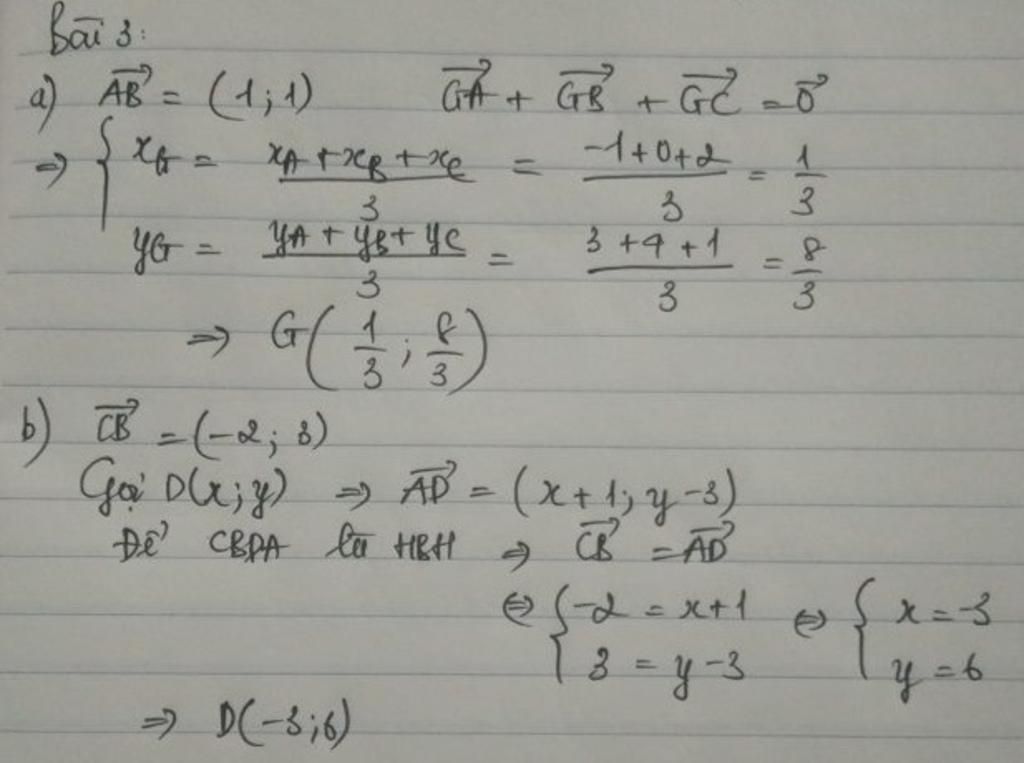 Bài 3:
a) $\overrightarrow{AB} = (1; 1)$ $\overrightarrow{GA} + \overrightarrow{GB} + \overrightarrow{GC} = \vec{0}$
$\Rightarrow \begin{cases} x_G = \frac{x_A + x_B + x_C}{3} = \frac{-1 + 0 + 2}{3} = \frac{1}{3} \end{cases}$
$y_G = \frac{y_A + y_B + y_C}{3} = \frac{3 + 4 + 1}{3} = \frac{8}{3}$
$\Rightarrow G\left(\frac{1}{3}; \frac{8}{3}\right)$
b) $\overrightarrow{CB} = (-2; 3)$
Gọi D(x; y) $\Rightarrow \overrightarrow{AD} = (x + 1; y - 3)$
Để CBDA là HBH $\Rightarrow \overrightarrow{CB} = \overrightarrow{AD}$
$\Leftrightarrow \begin{cases} -2 = x + 1 \\ 3 = y - 3 \end{cases} \Leftrightarrow \begin{cases} x = -3 \\ y = 6 \end{cases}$
$\Rightarrow$ D(-3; 6)